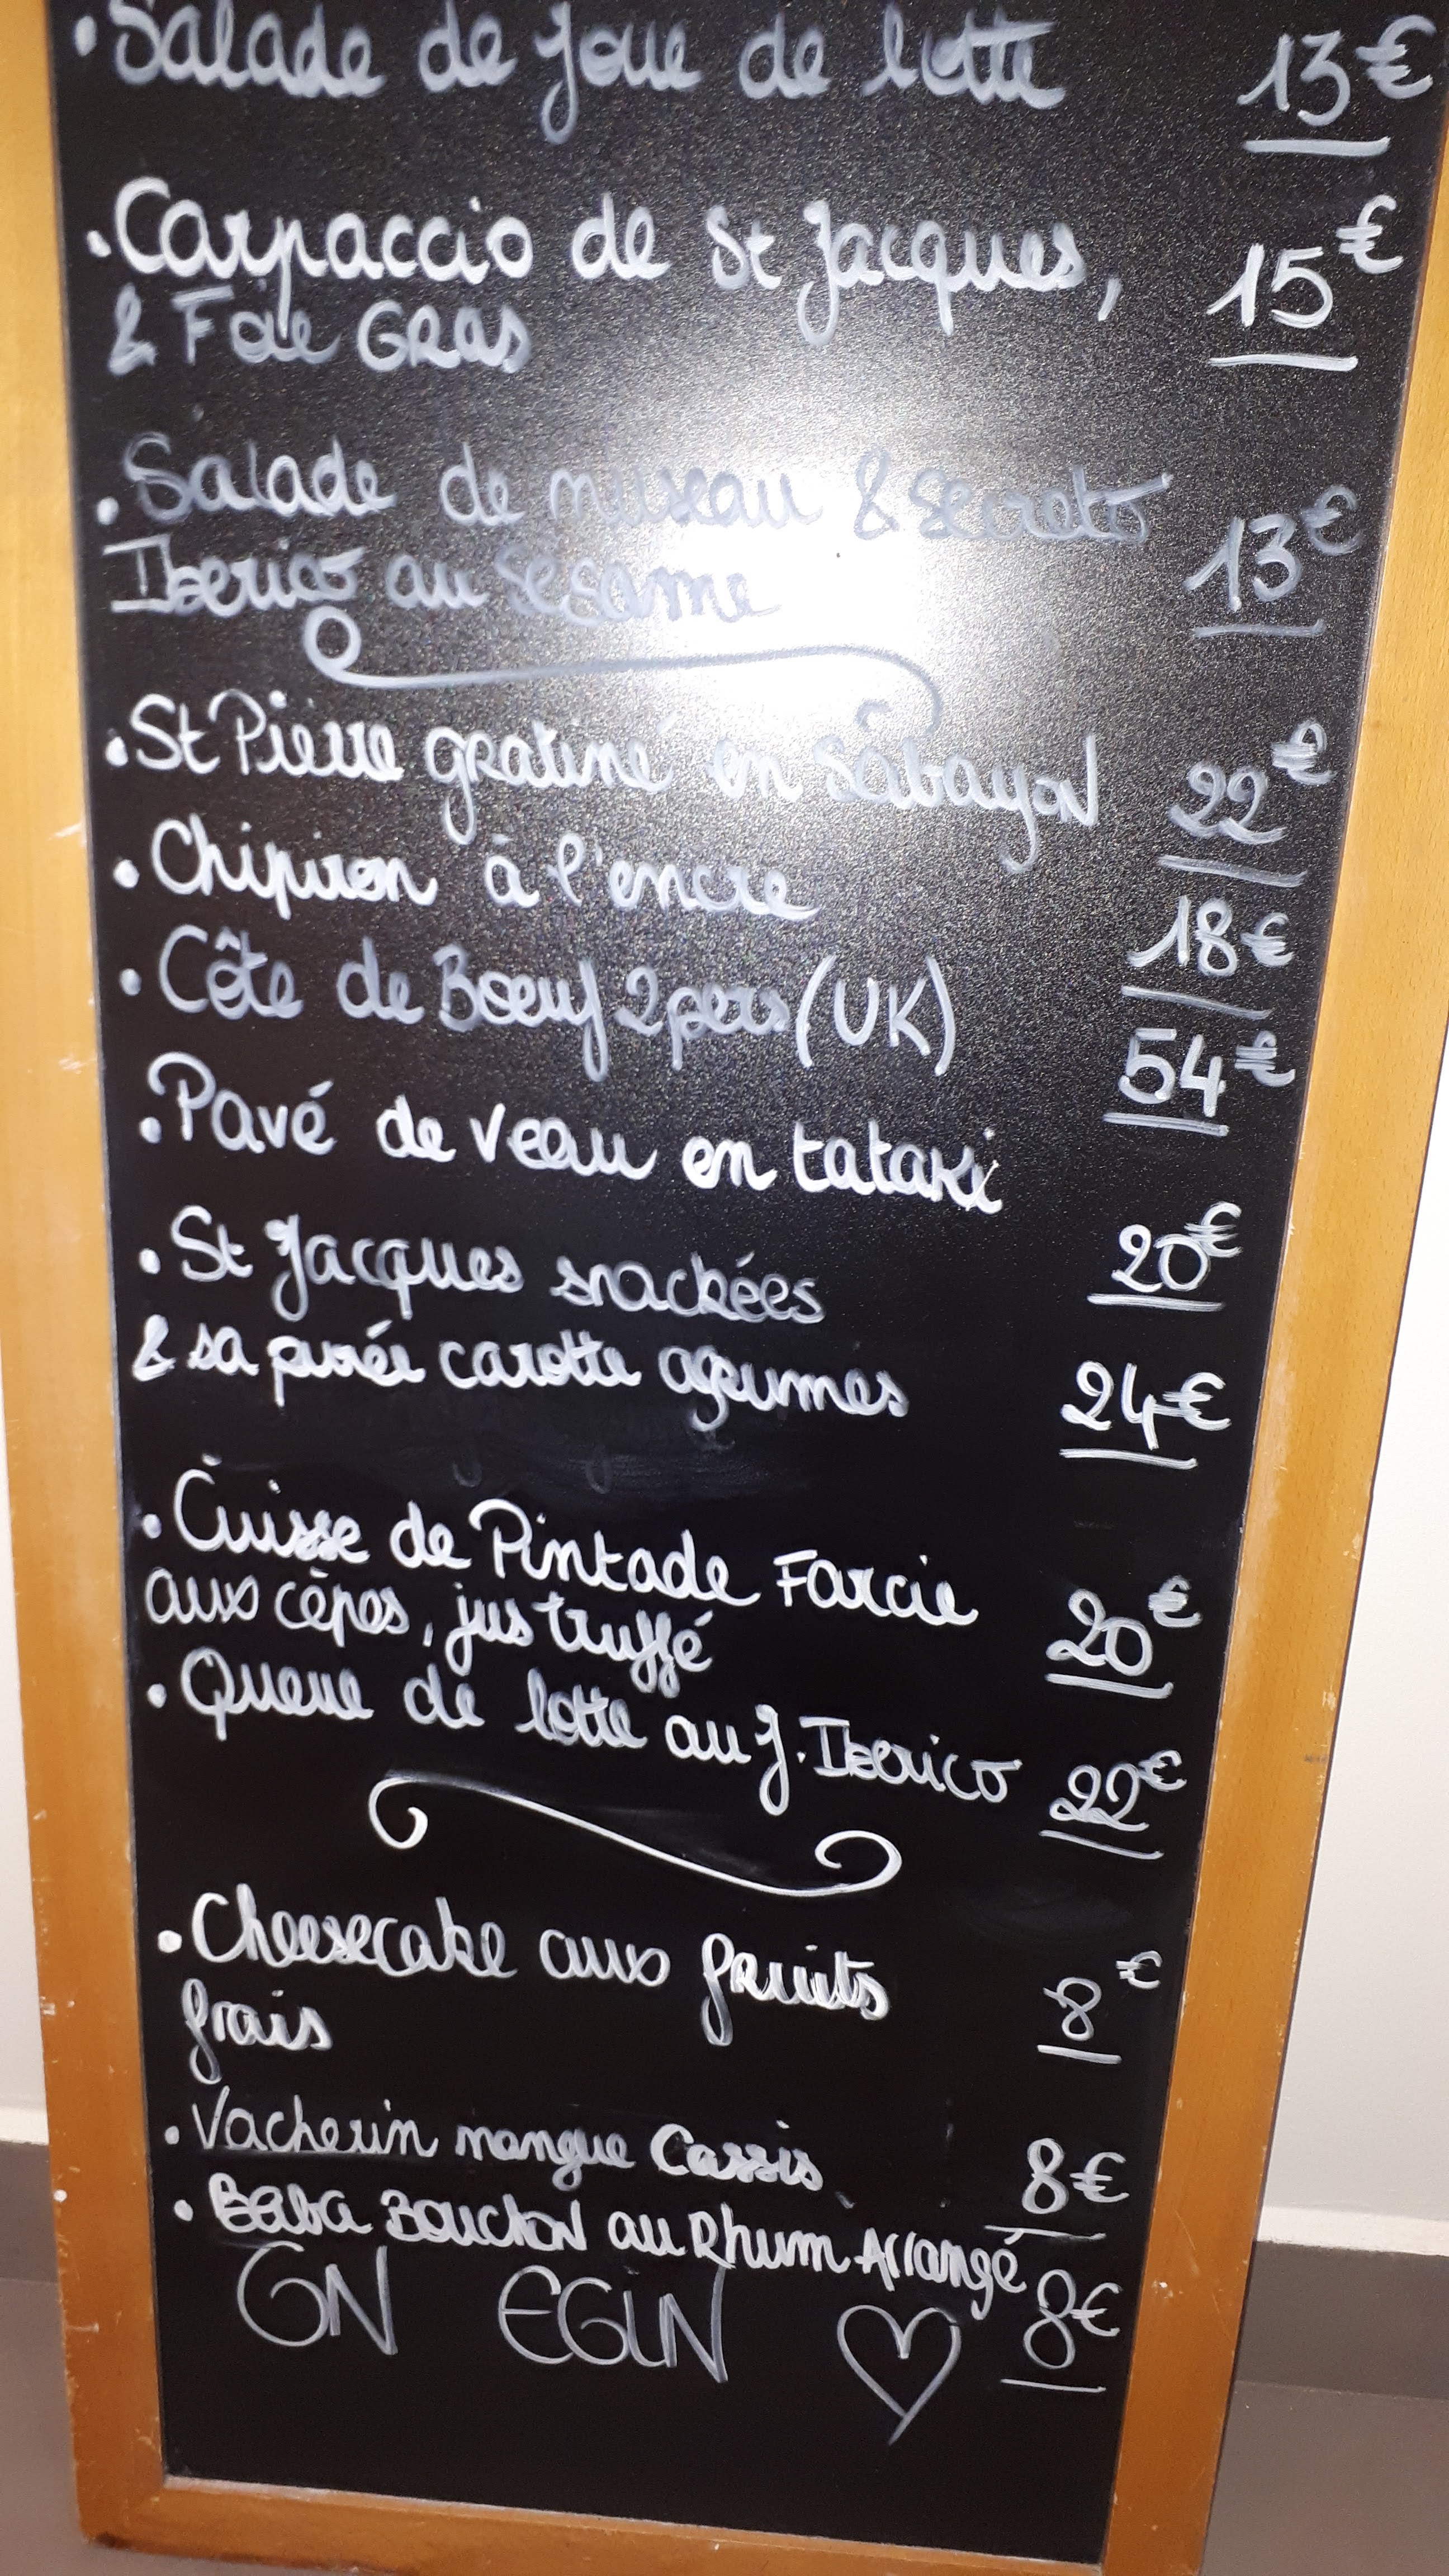 • Salade de joue de lotte 13€
• Carpaccio de St Jacques, 15€
& Foie GRAS
• Salade de museau & secreto
Iberico au sésame 13€
• St Pierre gratiné en sabayon 22€
• Chipiron à l'encre 18€
• Côte de Boeuf 2pers (UK) 54€
• Pavé de veau en tataki 20€
• St Jacques snackées
& sa purée carotte agrumes 24€
• Cuisse de Pintade Farcie
aux cèpes, jus truffé 20€
• Queue de lotte au J. Iberico 22€
• Cheesecake aux fruits 8€
frais
• Vacherin mangue Cassis 8€
• Baba Bouchon au Rhum Arrangé 8€
ON EGIN